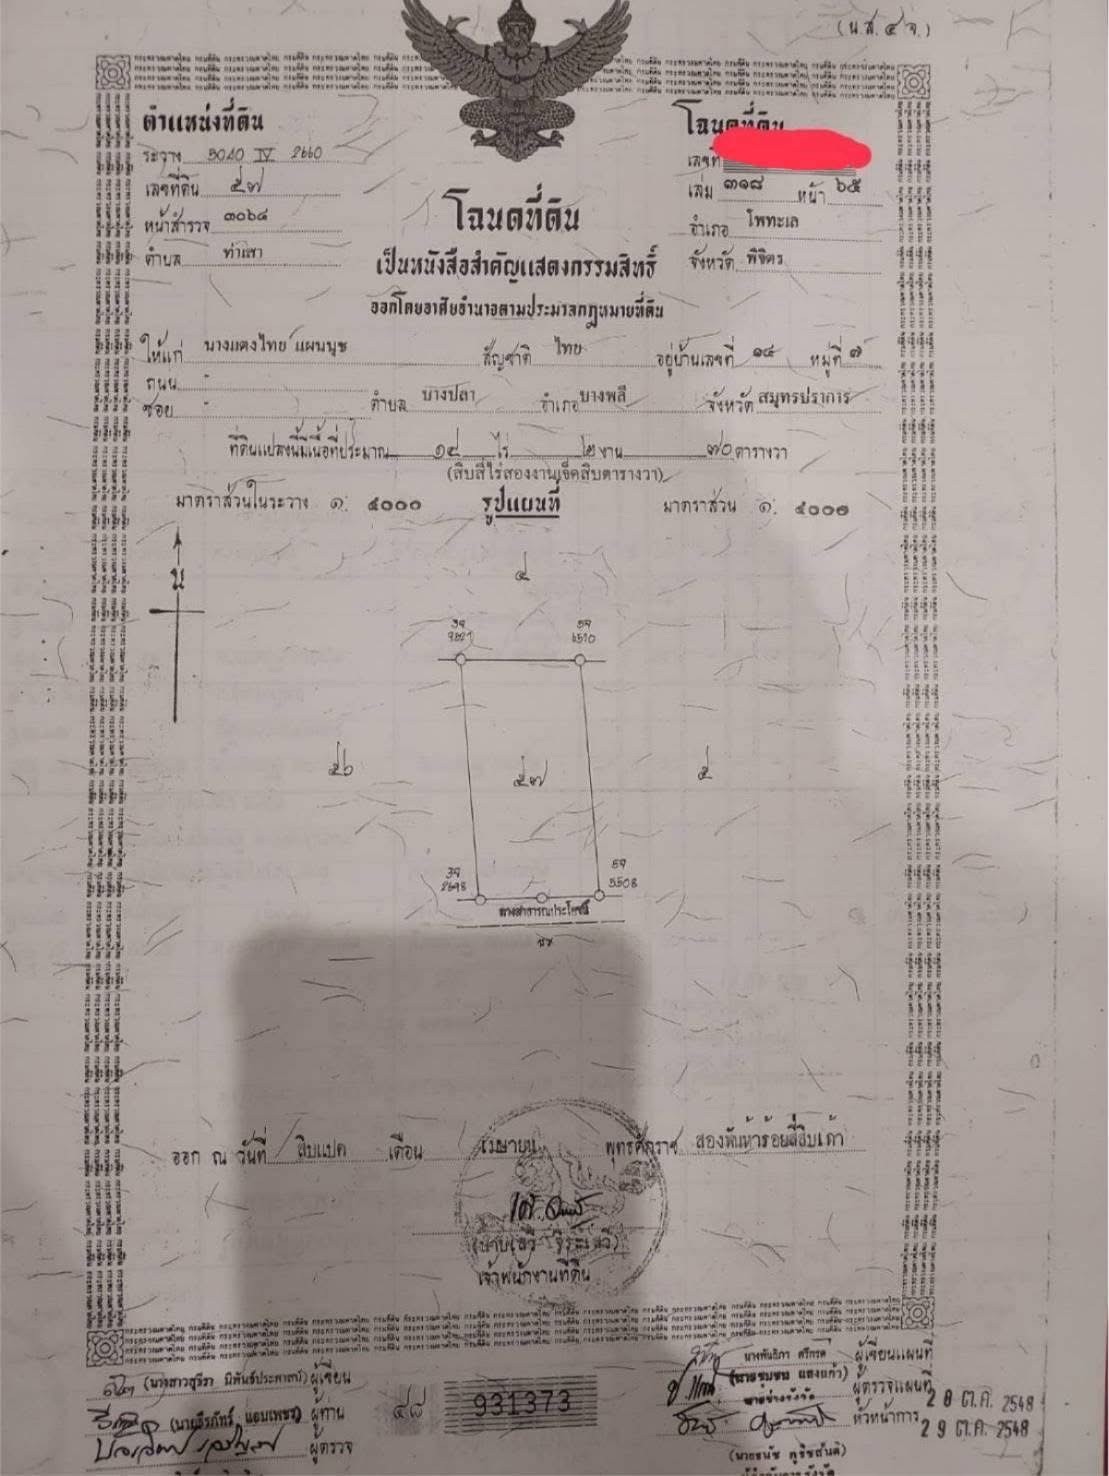 (น.ส. ๔ จ.)
ตำแหน่งที่ดิน
ระวาง 5040 IV 2660
เลขที่ดิน ๕๗
หน้าสำรวจ ๓๐๖๔
ตำบล ท่าเสา
โฉนดที่ดิน
เลขที่
เล่ม ๓๑๘ หน้า ๖๕
อำเภอ โพทะเล
จังหวัด พิจิตร
โฉนดที่ดิน
เป็นหนังสือสำคัญแสดงกรรมสิทธิ์
ออกโดยอาศัยอำนาจตามประมวลกฎหมายที่ดิน
ให้แก่ นางแตงไทย แผนนุช สัญชาติ ไทย อยู่บ้านเลขที่ ๑๔ หมู่ที่ ๗
ถนน -
ซอย - ตำบล บางปลา อำเภอ บางพลี จังหวัด สมุทรปราการ
ที่ดินแปลงนี้มีเนื้อที่ประมาณ ๑๔ ไร่ ๒ งาน ๗๐ ตารางวา
(สิบสี่ไร่สองงานเจ็ดสิบตารางวา)
มาตราส่วนในระวาง ๑: ๔๐๐๐ รูปแผนที่ มาตราส่วน ๑: ๔๐๐๐
น
๔
๕๖ ๕๗ ๕
ทางสาธารณประโยชน์
ออก ณ วันที่ สิบแปด เดือน เมษายน พุทธศักราช สองพันห้าร้อยสี่สิบเก้า
เจ้าพนักงานที่ดิน
ผู้เขียน
ผู้ทาน
ผู้ตรวจ
๔๘ 931373
ผู้เขียนแผนที่
(นายชุมชน แสงแก้ว) ผู้ตรวจแผนที่
นายช่างรังวัด 28 ต.ค. 2548
หัวหน้าการ 29 ต.ค. 2548